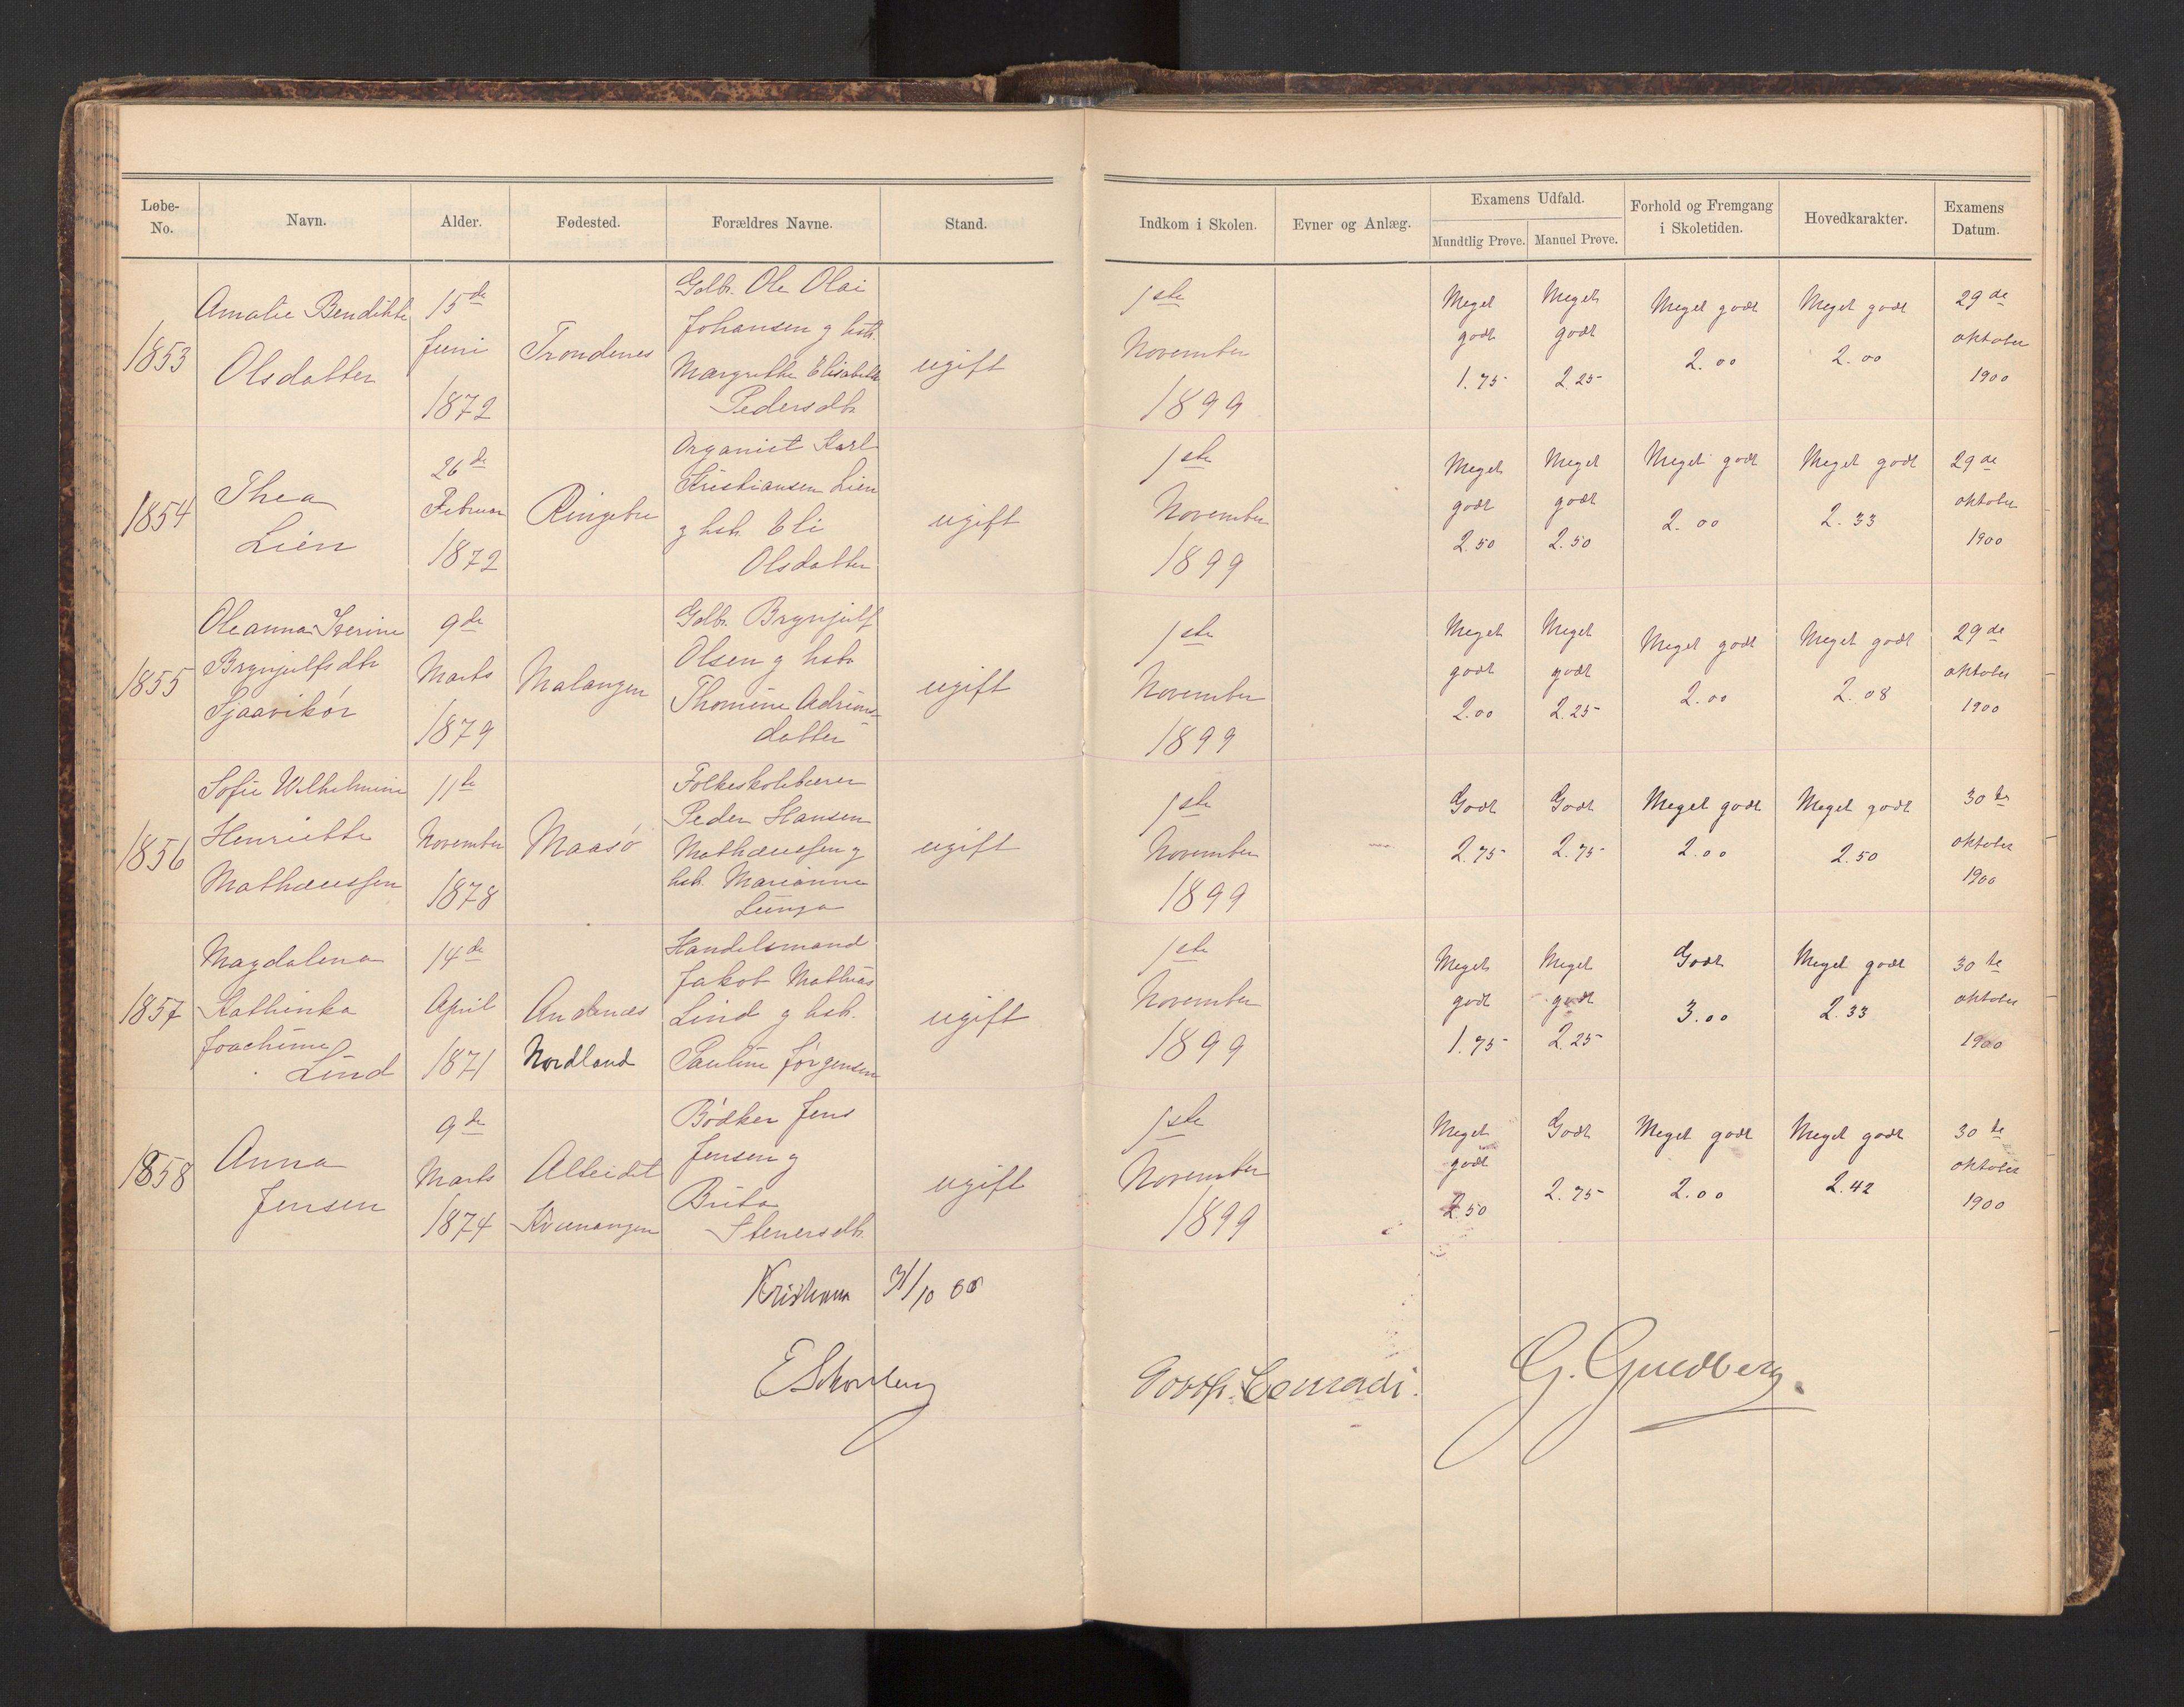 Løbe-No. Navn. Alder. Fødested. Forældres Navne. Stand. Indkom i Skolen. Evner og Anlæg. Examens Udfald. Mundtlig Prøve. Manuel Prøve. Forhold og Fremgang i Skoletiden. Hovedkarakter. Examens Datum.
1853
Amalie Bendikte
Olsdatter
15de
Juni
1872
Trondenes
Gdbr. Ole Olai
Johansen g hst.
Margrethe Elisabeth
Pedersdtr
ugift
1ste
November
1899
Meget
godt
1.75
Meget
godt
2.25
Meget godt
2.00
Meget godt
2.00
29de
oktober
1900
1854
Thea
Lien
26de
Februar
1872
Ringebu
Organist Karl
Kristiansen Lien
g hst. Eli
Olsdatter
ugift
1ste
November
1899
Meget
godt
2.50
Meget
godt
2.50
Meget godt
2.00
Meget godt
2.33
29de
oktober
1900
1855
Oleanna Iverine
Brynjulfsdtr
9de
Marts
1879
Malangen
Gdbr. Brynjulf
Olsen g hst.
Thomine Adrians-
datter
ugift
1ste
November
1899
Meget
godt
2.00
Meget
godt
2.25
Meget godt
2.00
Meget godt
2.08
29de
oktober
1900
1856
Sofie Wilhelmine
Henriette
Mathæussen
11te
November
1878
Maasø
Folkeskolelærer
Peder Hansen
Mathæussen g
hst. Marianne
ugift
1ste
November
1899
Godt
2.75
Godt
2.75
Meget godt
2.00
Meget godt
2.50
30te
oktober
1900
1857
Magdalena
Kathinka
Joachime
Lind
14de
April
1871
Andenæs
Nordland
Handelsmand
Jakob Mathias
Lind g hst.
Pauline Jørgensen
ugift
1ste
November
1899
Meget
godt
1.75
Meget
godt
2.25
Godt
3.00
Meget godt
2.33
30te
oktober
1900
1858
Anna
Jensen
9de
Marts
1874
Alteidet
Kvænangen
Bødker Jens
Jensen g
Brita
Stenersdtr.
ugift
1ste
November
1899
Meget
godt
2.50
Godt
2.75
Meget godt
2.00
Meget godt
2.42
30te
oktober
1900
Kristiania 31/10 00
E Schønberg
Conradi.
G. Guldberg.